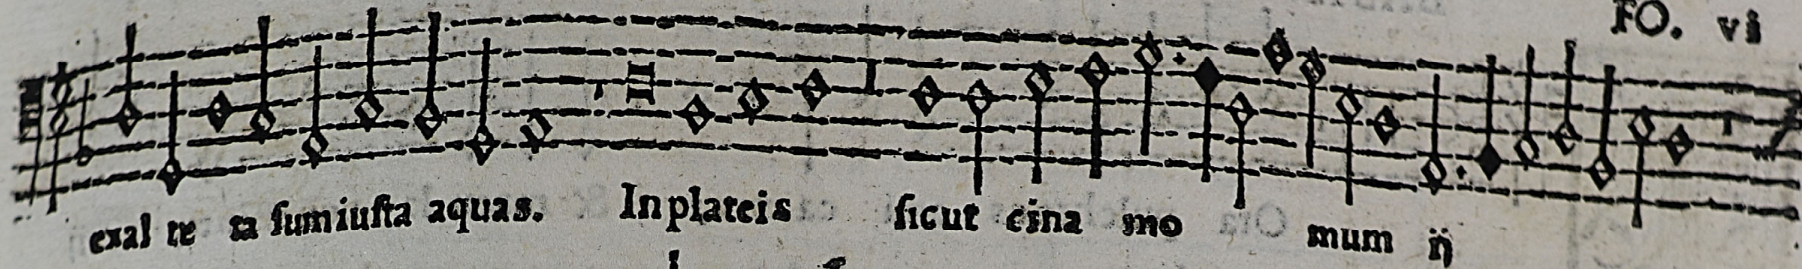 FO. vi
exal te ta sum iusta aquas. In plateis sicut cina mo mum ij